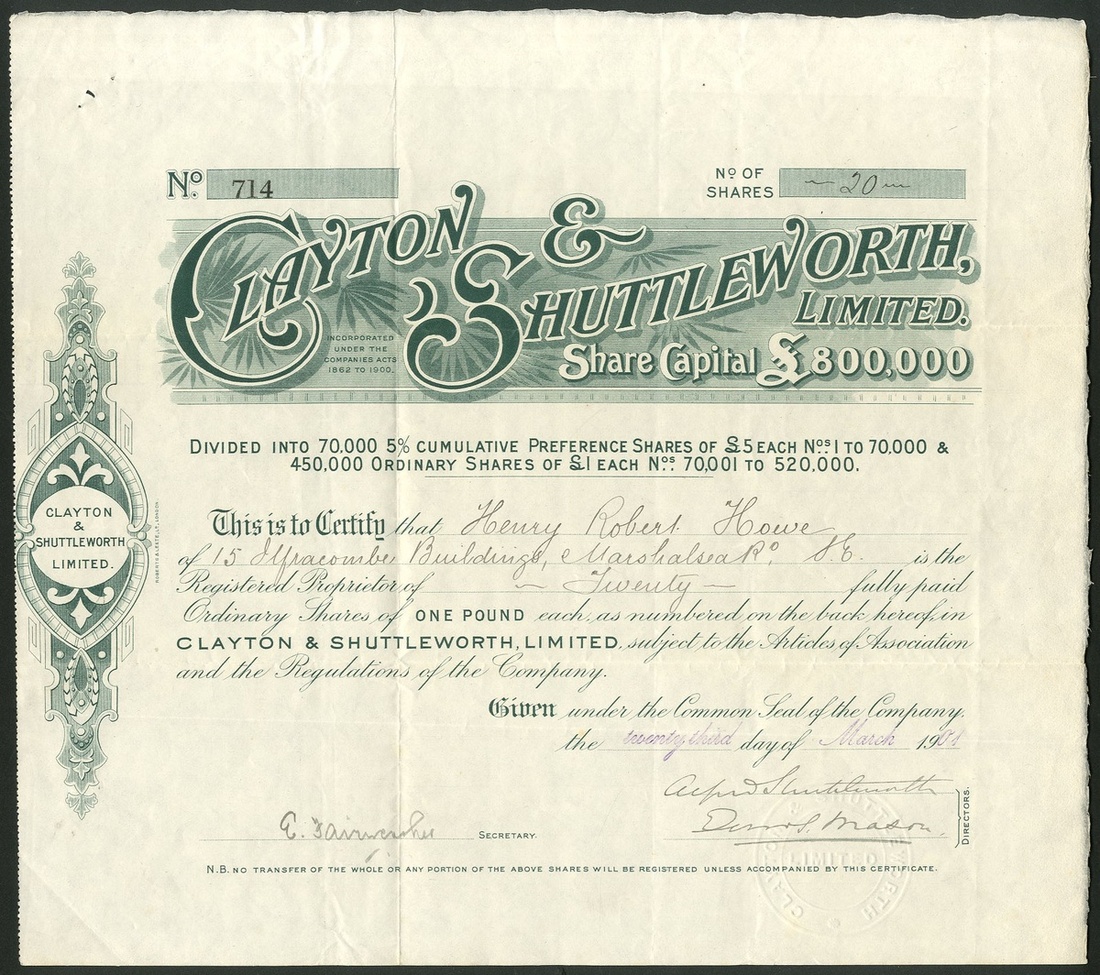 No. 714
No OF SHARES 20
CLAYTON & SHUTTLEWORTH, LIMITED.
INCORPORATED
UNDER THE
COMPANIES ACTS
1862 TO 1900.
Share Capital £800,000
DIVIDED INTO 70.000 5% CUMULATIVE PREFERENCE SHARES OF £5 EACH Nos. 1 TO 70.000 &
450,000 ORDINARY SHARES OF £1 EACH Nos. 70,001 TO 520,000.
CLAYTON
&
SHUTTLEWORTH
LIMITED.
This is to Certify that Henry Robert Howe
of 15 Ilfracombe Buildings, Marshalsea Rd. S.E is the
Registered Proprietor of Twenty fully paid
Ordinary Shares of ONE POUND each, as numbered on the back hereof, in
CLAYTON & SHUTTLEWORTH, LIMITED, subject to the Articles of Association
and the Regulations of the Company.
Given under the Common Seal of the Company.
the twenty third day of March 1901
Alfred Shuttleworth
Mason.
DIRECTORS.
SECRETARY.
N.B. NO TRANSFER OF THE WHOLE OR ANY PORTION OF THE ABOVE SHARES WILL BE REGISTERED UNLESS ACCOMPANIED BY THIS CERTIFICATE.
LIMITED